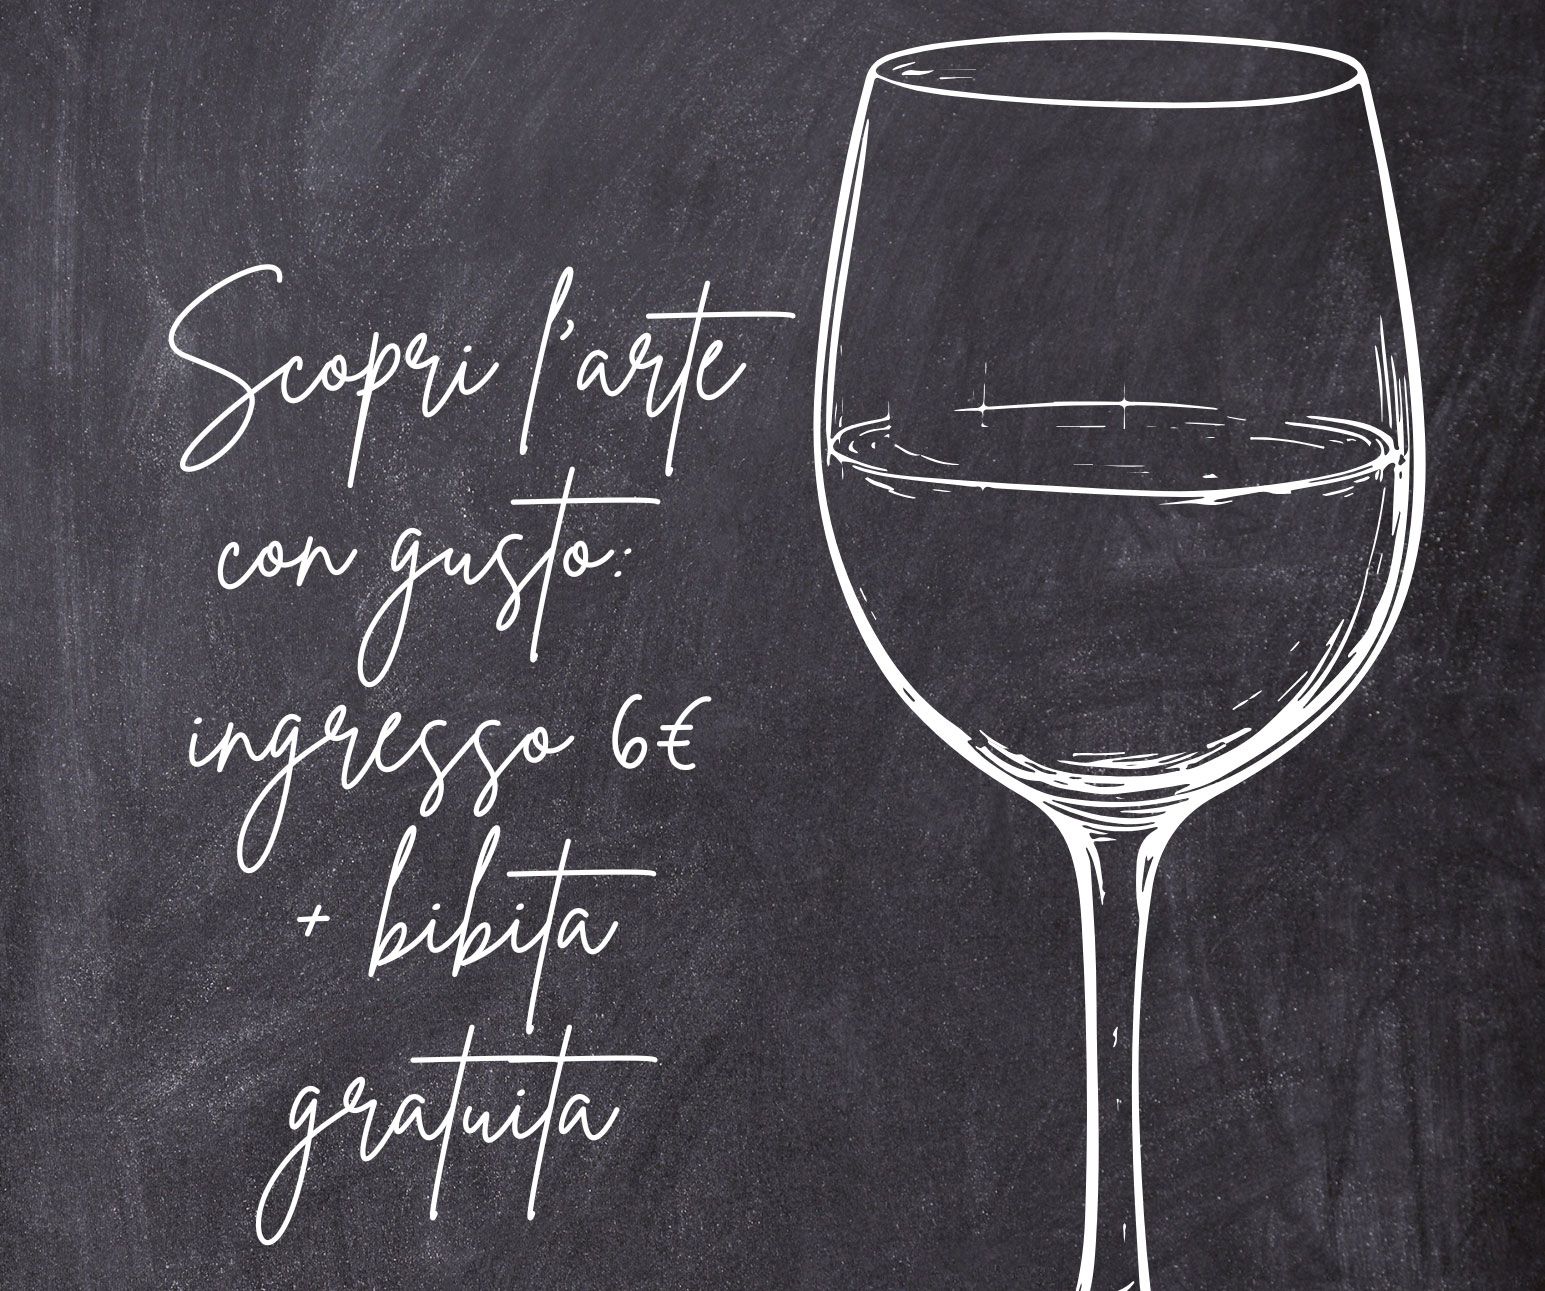 Scopri l'arte
con gusto:
ingresso 6€
+ bibita
gratuita